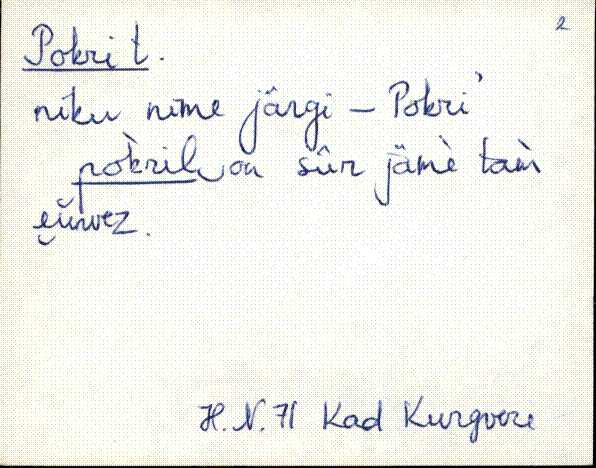 2
Pokri t.
niku nime järgi – Pokri'
pokril on sūr jäme tam̀
H. N. 71 Kad Kurgvere